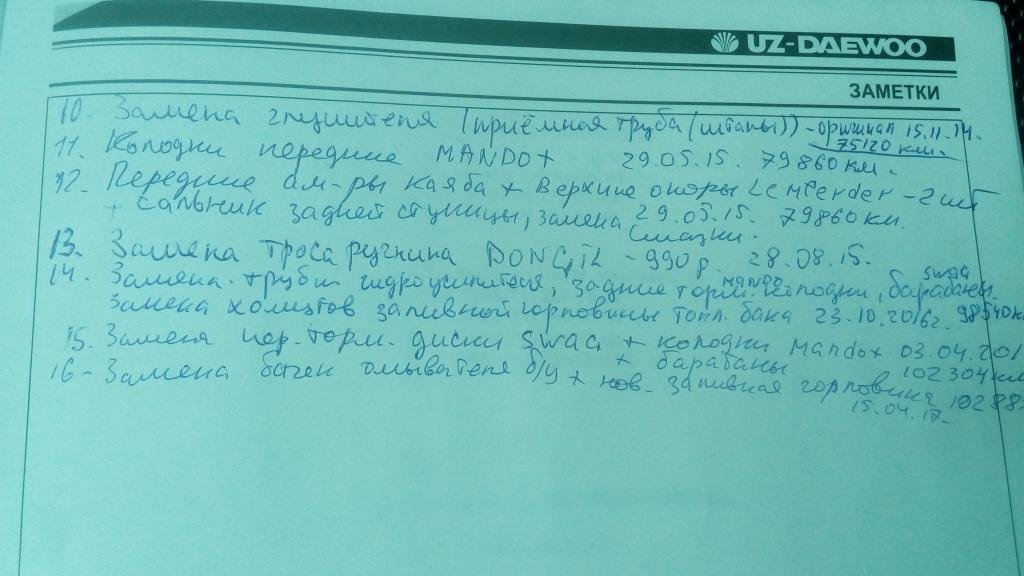 UZ-DAEWOO
ЗАМЕТКИ
10. Замена глушителя (приёмная труба (штаны)) - оригинал 15.11.14.
75120 км.
11. Колодки передние MANDO + 29.05.15. 79860 км.
12. Передние ам-ры Каяба + Верхние опоры Lemferder - 2 шт
+ сальник задней ступицы, замена смазки. 29.05.15. 79860 км.
13. Замена троса ручника DONGIL - 990 р. 28.08.15.
14. Замена трубки гидроусилителя, задние торм. колодки MANDO, барабаны swag
Замена хомутов заливной горловины топл. бака 23.10.2016г. 98540км
15. Замена пер. торм. диски swag + колодки Mando + 03.04.201
+ барабаны 102304км
16 - Замена бачек омывателя б/у + нов. заливная горловина 1028
15.04.17.